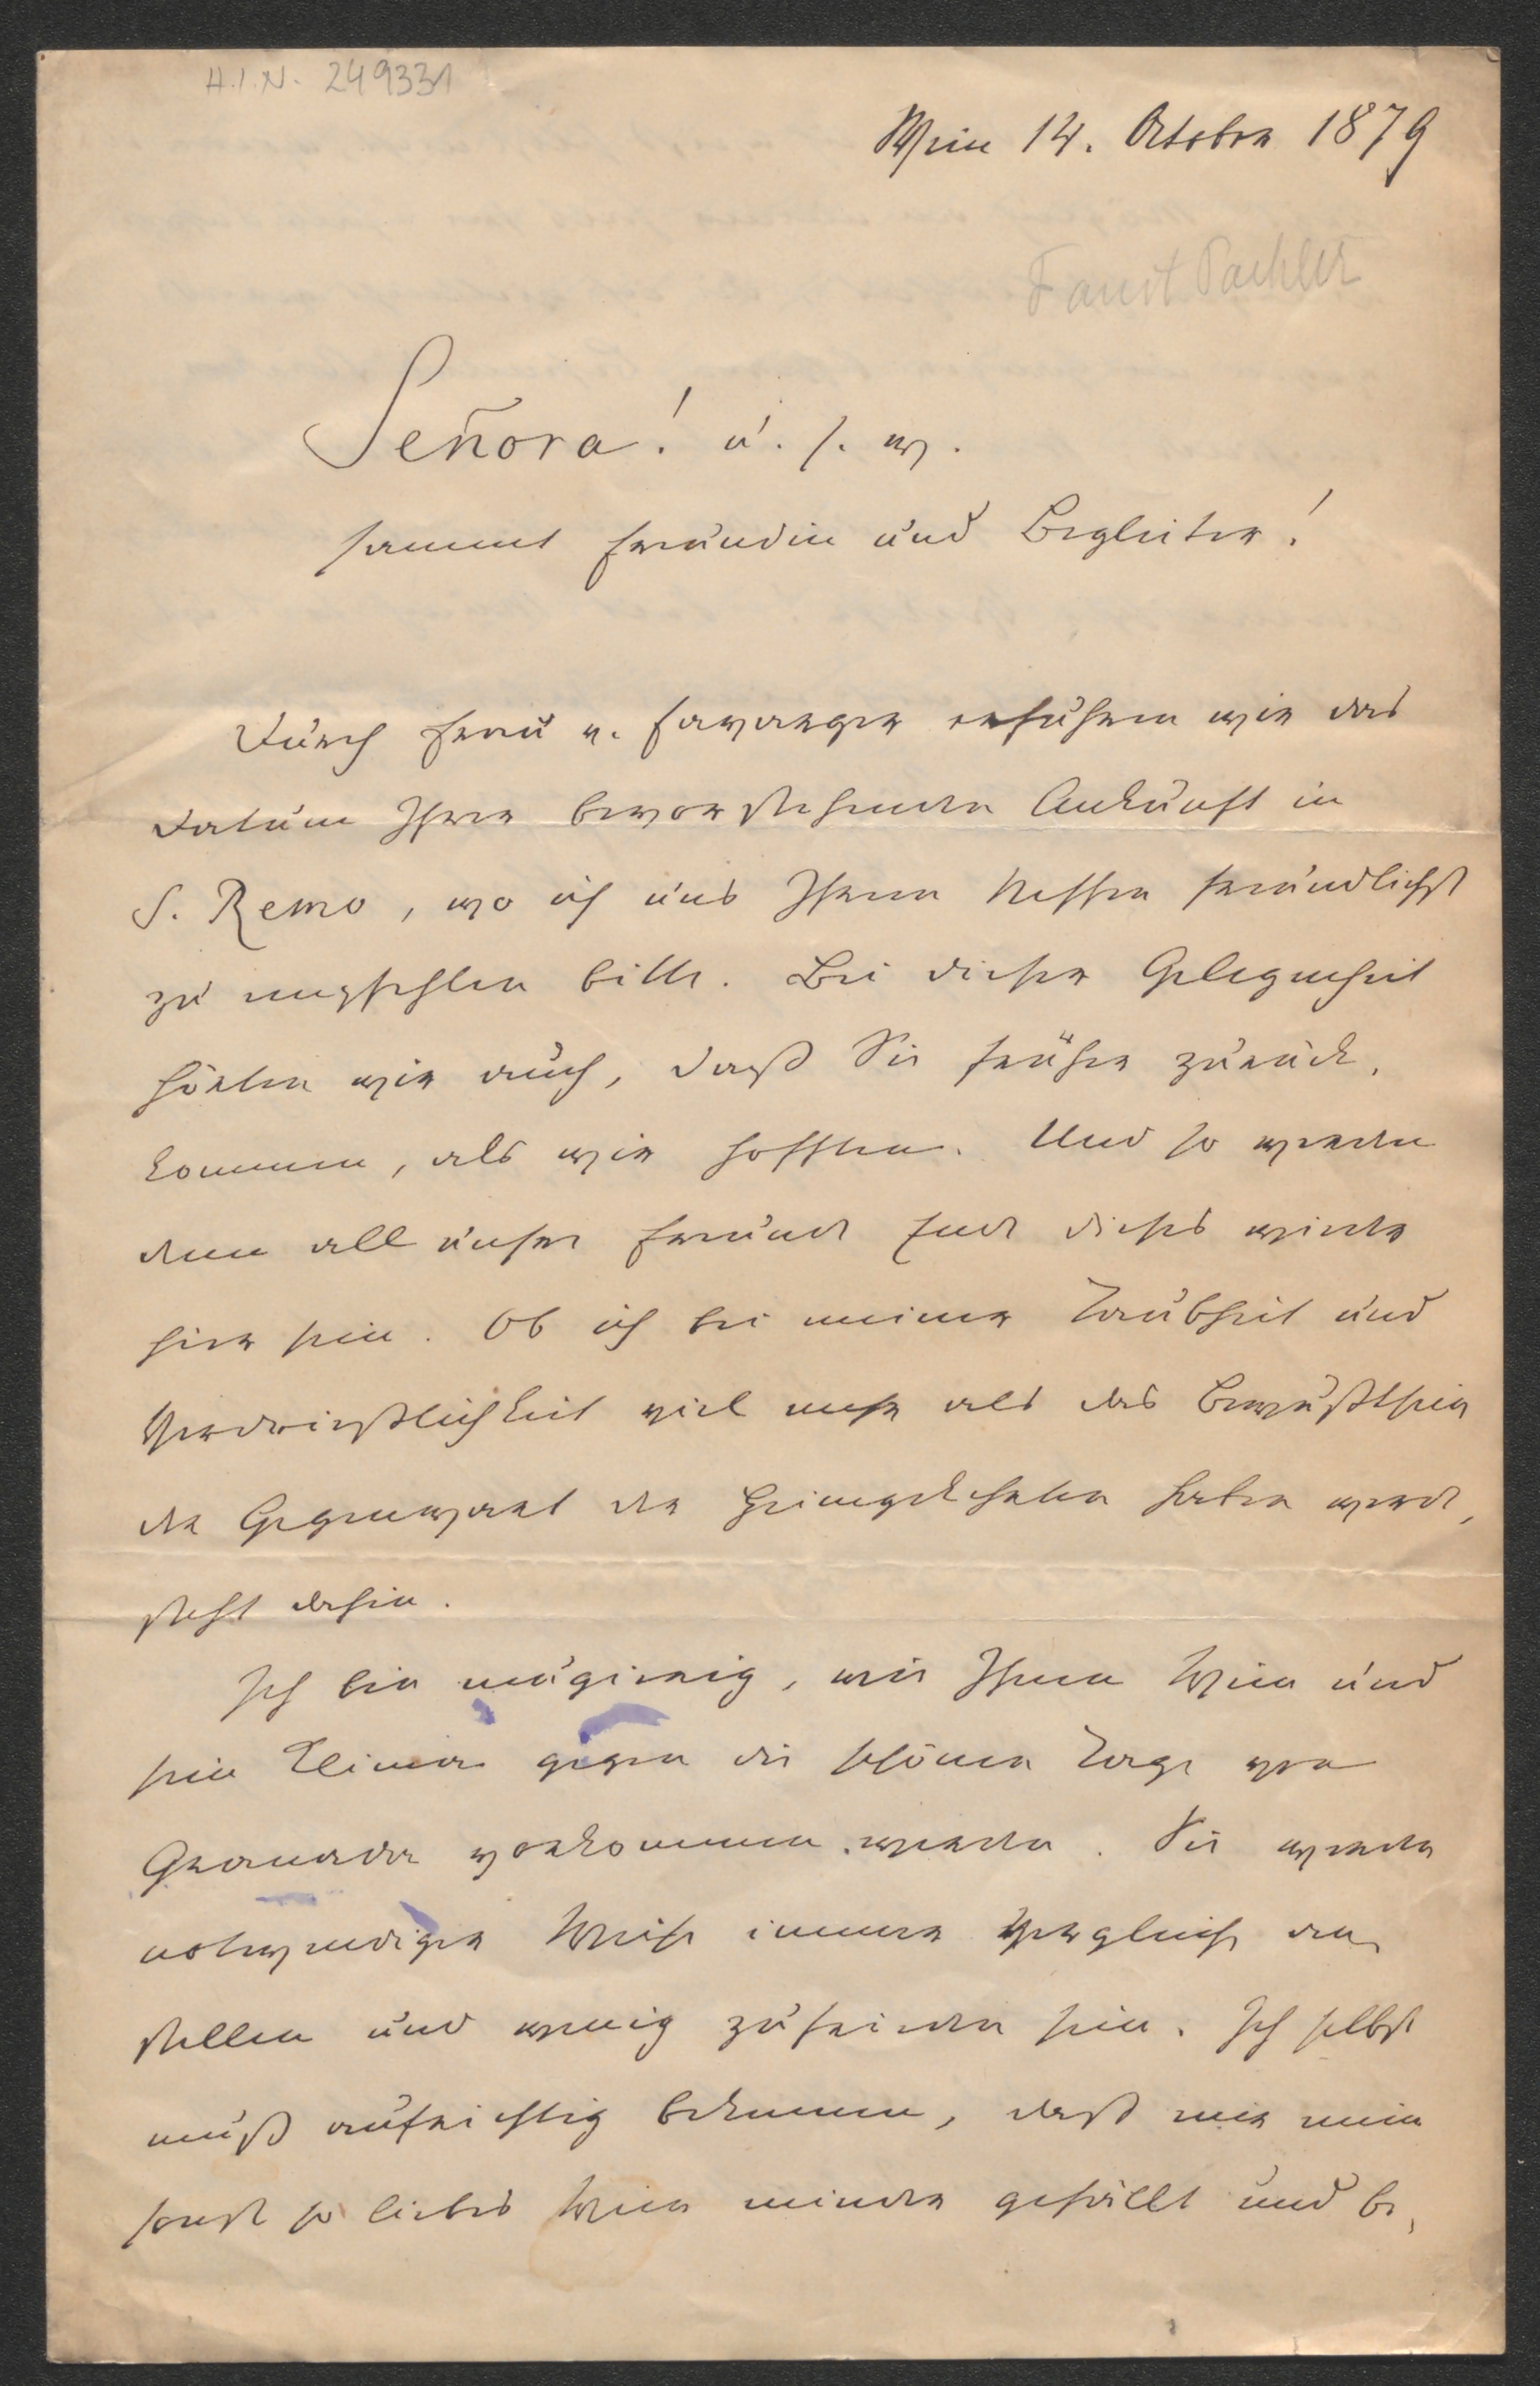 H.I.N. 249331
Wien 14. October 1879
Faust Pachler
Señora! u. s. w.
sammt Freundin und Begleiter!
Durch Frau v. Favarger erfuhren wir das
Datum Ihrer bevorstehenden Ankunft in
S. Remo, wo ich uns Ihrem Neffen freundlichst
zu empfehlen bitte. Bei dieser Gelegenheit
hörten wir auch, daß Sie früher zurück-
kommen, als wir hofften. Und so werden
denn all unsre Freunde Ende dieses wieder
hier sein. Ob ich bei meiner Taubheit und
Verdrießlichkeit viel mehr als das Bewußtsein
der Gegenwart der Heimgekehrten haben werde,
steht dahin.
Ich bin neugierig, wie Ihnen Wien und
sein Clima gegen die schönen Tage von
Granada vorkommen werden. Sie werden
nothwendiger Weise immer Vergleiche an-
stellen und wenig zufrieden sein. Ich selbst
muß aufrichtig bekennen, daß mir mein
sonst so liebes Wien minder gefällt und be-